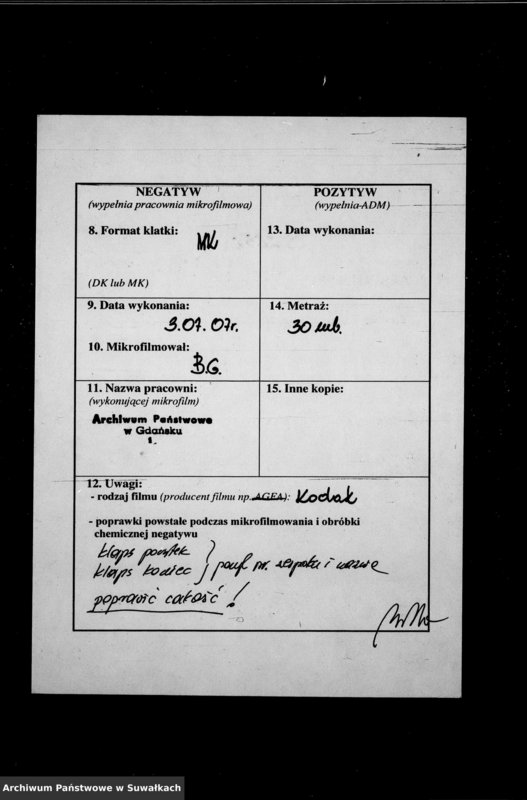 NEGATYW
(wypełnia pracownia mikrofilmowa)
8. Format klatki:
MK
(DK lub MK)
POZYTYW
(wypełnia ADM)
13. Data wykonania:
9. Data wykonania:
3.07.07r.
10. Mikrofilmował:
B.G.
14. Metraż:
30 mb.
11. Nazwa pracowni:
(wykonującej mikrofilm)
Archiwum Państwowe
w Gdańsku
1.
15. Inne kopie:
12. Uwagi:
- rodzaj filmu (producent filmu np. AGFA): Kodak
- poprawki powstałe podczas mikrofilmowania i obróbki
chemicznej negatywu
klaps początek
klaps koniec nr. zespołu i nazwę
poprawić całość!
Archiwum Państwowe w Suwałkach